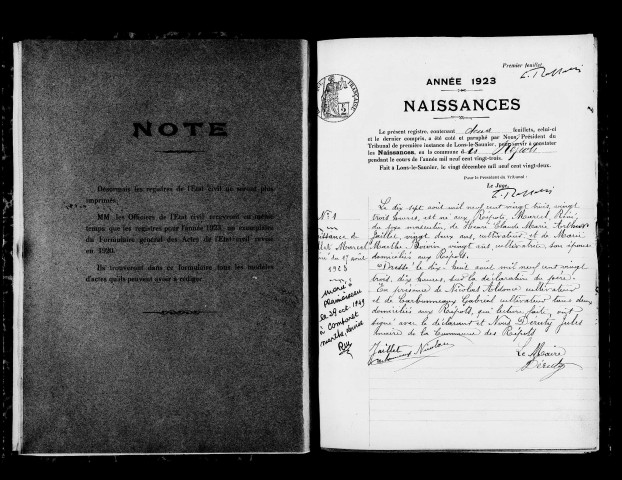 NOTE
Désormais les registres de l'Etat civil ne seront plus
imprimés.
MM. les Officiers de l'Etat civil recevront en même
temps que les registres pour l'année 1923, un exemplaire
du Formulaire général des Actes de l'Etat civil revu
en 1920.
Ils trouveront dans ce formulaire tous les modèles
d'actes qu'ils peuvent avoir à rédiger.
Premier feuillet
ANNÉE 1923
NAISSANCES
Le présent registre, contenant feuillets, celui-ci
et le dernier compris, a été coté et paraphé par Nous, Président du
Tribunal de première instance de Lons-le-Saunier, pour servir à constater
les Naissances, en la commune d
pendant le cours de l'année mil neuf cent vingt-trois.
Fait à Lons-le-Saunier, le vingt décembre mil neuf cent vingt-deux.
Pour le Président du Tribunal :
Le Juge,
Nº 1
Le dix sept août mil neuf cent vingt trois, vingt
trois heures, est né aux Répôts, Marcel, René,
du sexe masculin, de Henri Claude Marie
Jaillet, vingt deux ans, cultivateur et de Marie
Marthe Boivin vingt ans cultivatrice son épouse
domiciliés aux Répôts.
Dressé le dix-huit août mil neuf cent vingt
trois, dix heures, sur la déclaration du père.
En présence de Nicolas cultivateur
et de Carbonneaux Gabriel cultivateur tous deux
domiciliés aux Répôts, qui, lecture faite, ont
signé avec le déclarant et Nous Deruty Jules
Maire de la Commune des Répôts
naissance de
Marcel
du 17 août
1923
Marié à
le 29 oct 1949
à
Jaillet
Nicolas
Le Maire
Deruty